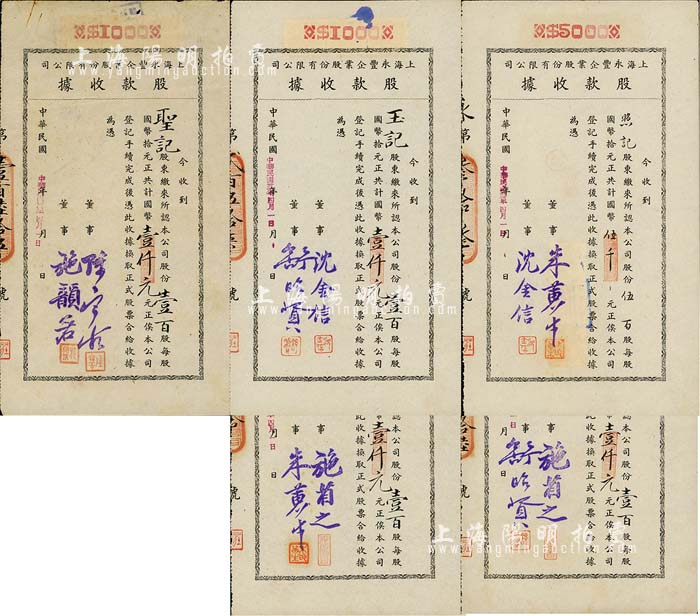 $1000
上海永豐企業股份有限公司
股款收據
今收到
聖記股東繳來所認本公司股份壹百每股
國幣拾元正共計國幣壹仟元正俟本公司
登記手續完成後憑此收據換取正式股票合給收據
為憑
董事
董事
施韻若
中華民國 年 月 日
第 號
$1000
上海永豐企業股份有限公司
股款收據
今收到
玉記股東繳來所認本公司股份壹百每股
國幣拾元正共計國幣壹仟元正俟本公司
登記手續完成後憑此收據換取正式股票合給收據
為憑
董事 沈金信
董事 舒昭賢
中華民國 年 月 日
第 號
$5000
上海永豐企業股份有限公司
股款收據
今收到
照記股東繳來所認本公司股份伍百每股
國幣拾元正共計國幣伍千元正俟本公司
登記手續完成後憑此收據換取正式股票合給收據
為憑
董事
董事 沈金信
中華民國 年 月 日
第 號
認本公司股份壹百每股
壹仟元正俟本公司
此收據換取正式股票合給收據
事 施省之
事
月 日
號
認本公司股份壹百每股
壹仟元正俟本公司
此收據換取正式股票合給收據
事 施省之
事 舒昭賢
月 日
號
上海陽明拍賣
www.yangmingauction.com